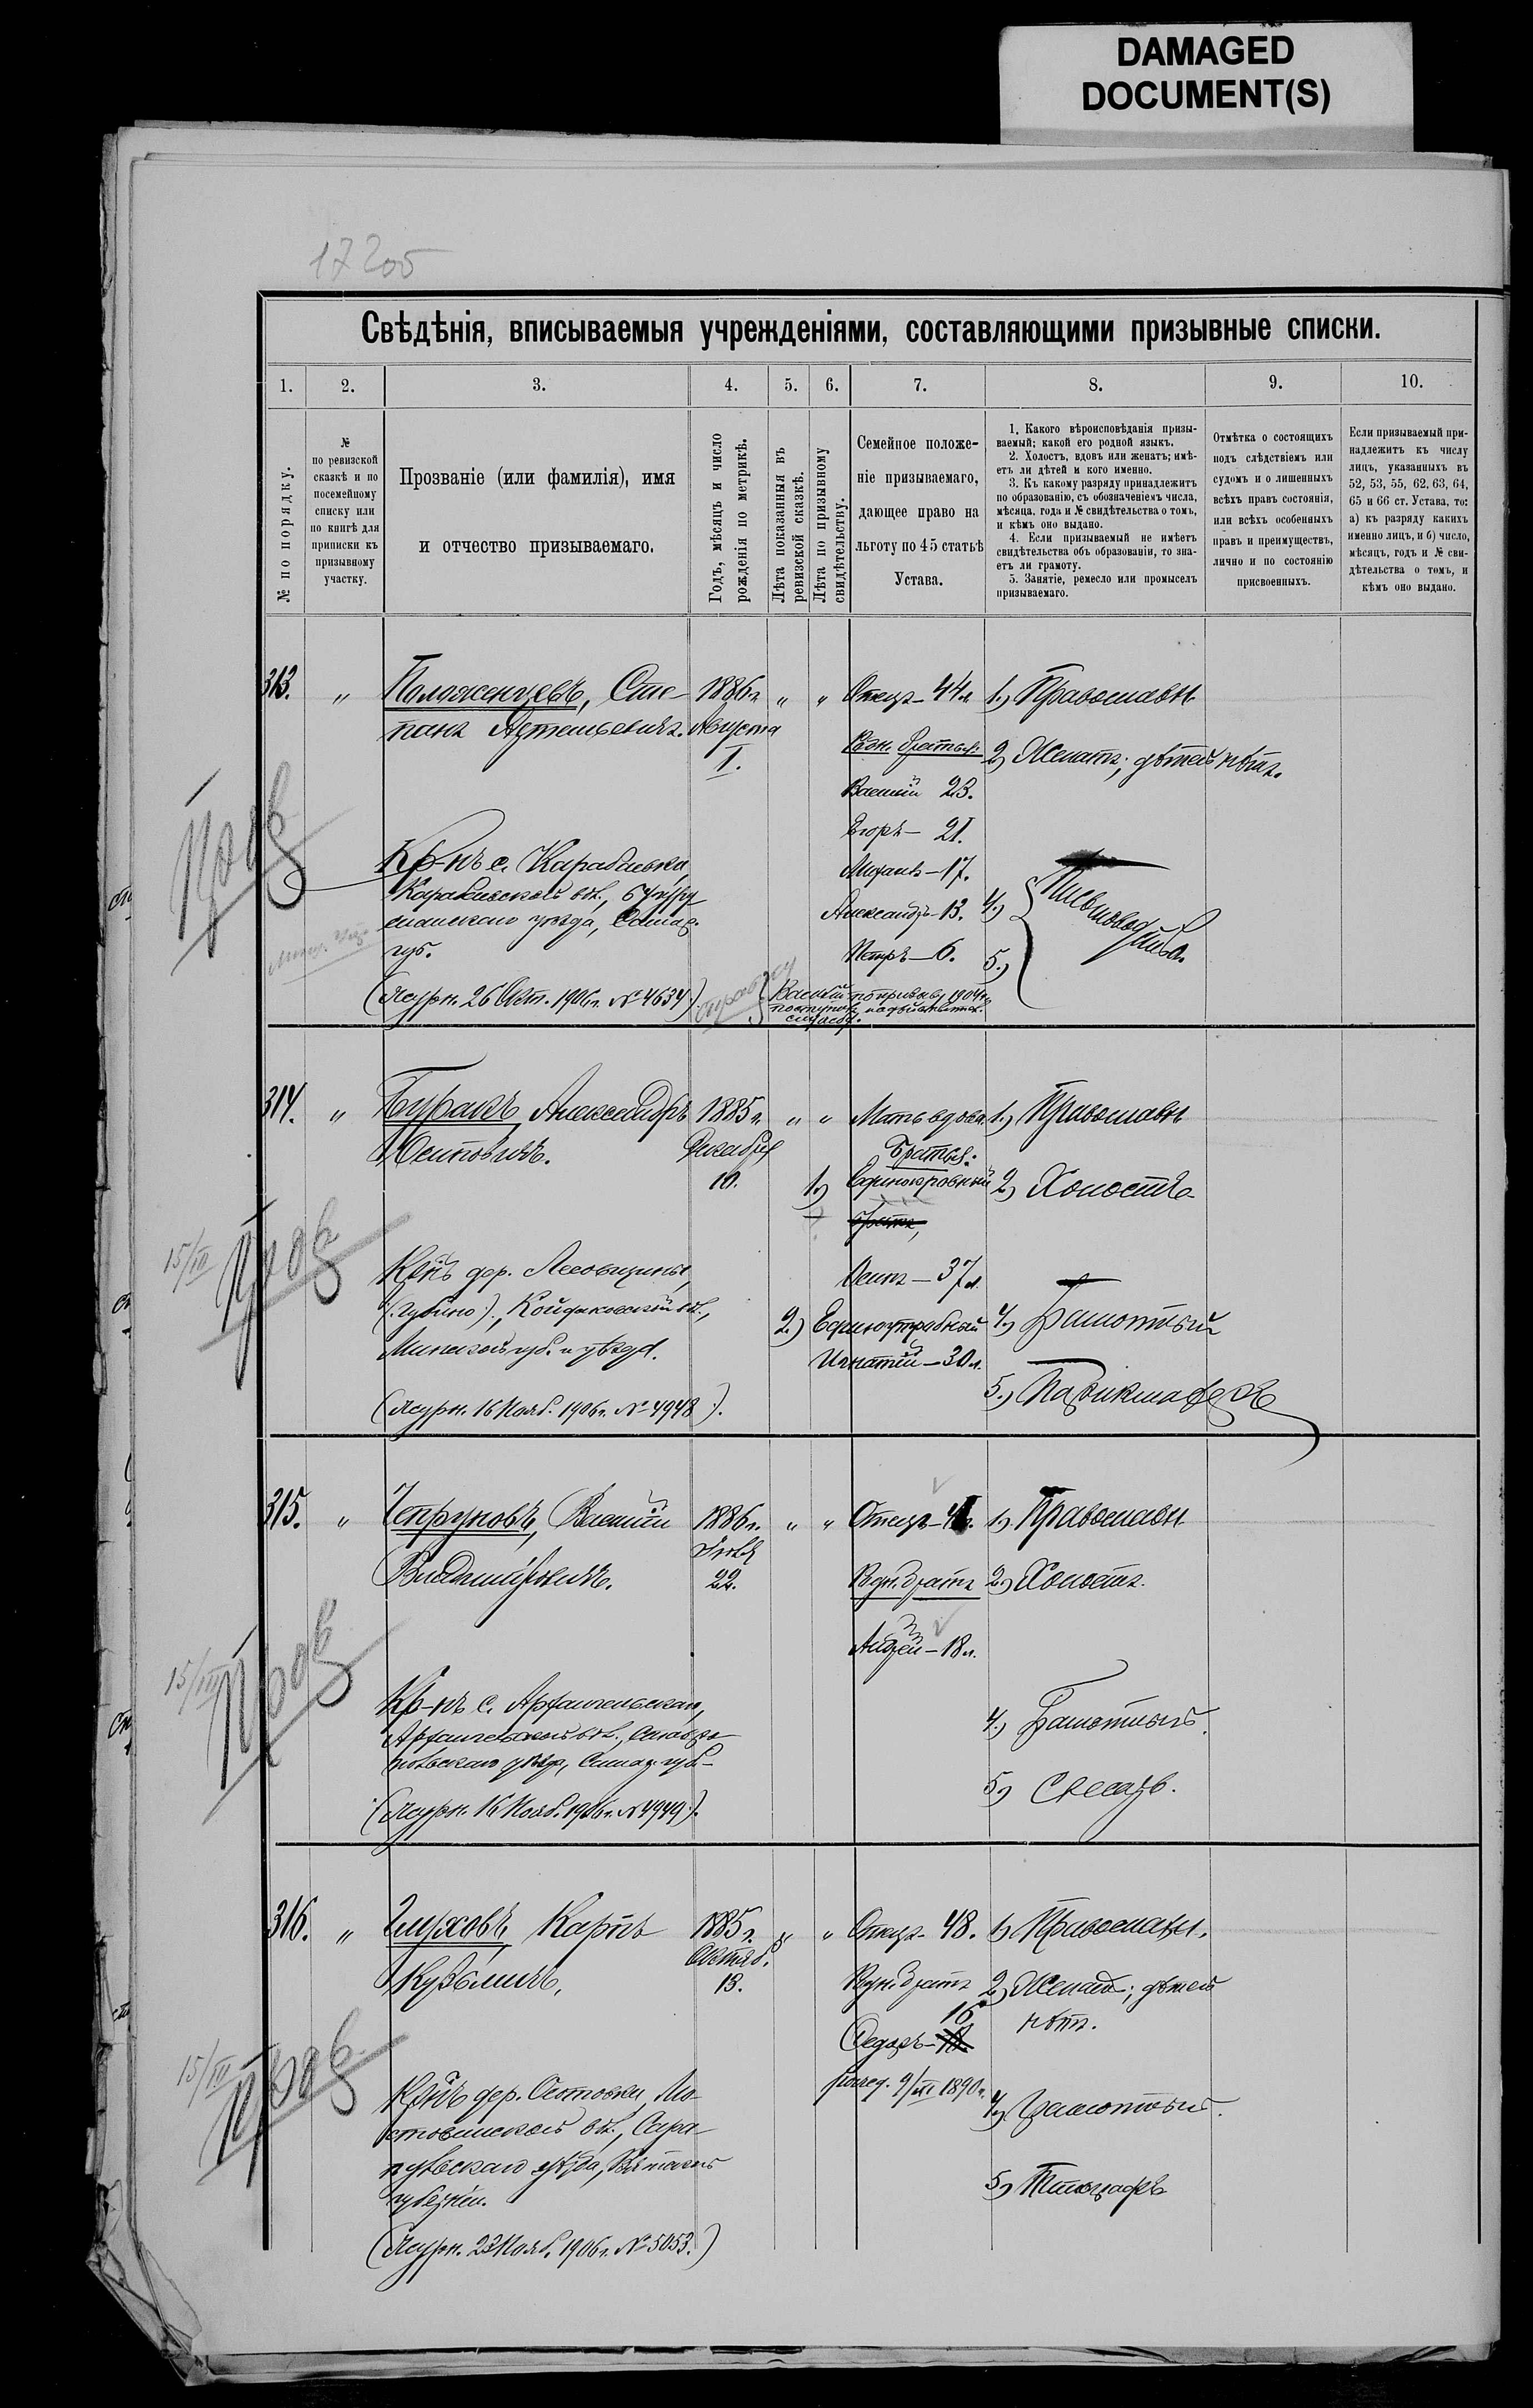 DAMAGED
DOCUMENT(S)
17205
Свѣдѣнія, вписываемыя учрежденіями, составляющими призывные списки.
1. 2. 3. 4. 5. 6. 7. 8. 9. 10.
№ по порядку.
№
по ревизской
сказкѣ и по
посемейному
списку или
по книгѣ для
приписки къ
призывному
участку.
Прозваніе (или фамилія), имя
и отчество призываемаго.
Годъ, мѣсяцъ и число
рожденія по метрикѣ.
Лѣта показанныя въ
ревизской сказкѣ.
Лѣта по призывному
свидѣтельству.
Семейное положе-
ніе призываемаго,
дающее право на
льготу по 45 статьѣ
Устава.
1. Какого вѣроисповѣданія призы-
ваемый; какой его родной языкъ.
2. Холостъ, вдовъ или женатъ; имѣ-
етъ ли дѣтей и кого именно.
3. Къ какому разряду принадлежитъ
по образованію, съ обозначеніемъ числа,
мѣсяца, года и № свидѣтельства о томъ,
и кѣмъ оно выдано.
4. Если призываемый не имѣетъ
свидѣтельства объ образованіи, то зна-
етъ ли грамоту.
5. Занятіе, ремесло или промыселъ
призываемаго.
Отмѣтка о состоящихъ
подъ слѣдствіемъ или
судомъ и о лишенныхъ
всѣхъ правъ состоянія,
или всѣхъ особенныхъ
правъ и преимуществъ,
лично и по состоянію
присвоенныхъ.
Если призываемый при-
надлежитъ къ числу
лицъ, указанныхъ въ
52, 53, 55, 62, 63, 64,
65 и 66 ст. Устава, то:
а) къ разряду какихъ
именно лицъ, и б) число,
мѣсяцъ, годъ и № сви-
дѣтельства о томъ, и
кѣмъ оно выдано.
313. " Положенцевъ, Сте- 1886г. " " Отецъ-44л. 1.) Православн.
панъ Артемьевичъ. Августа
1.
Родн. братья: 2) Женатъ; дѣтей нѣтъ.
Василій 23.
Егоръ- 21.
Михаилъ-17.
Александръ-13. 4.)
Петръ-6. 5.)
Пров
Кр-нъ с.
уѣзда, Самар.
губ.
(Журн. 26 Окт. 1906г. № 4634).
Василій по призыву 1904г.
314. " Буракъ Александръ 1885г. " " Мать вдова. 1.) Православн
Осиповичъ. Декабря
10.
Братья:
1) Единокровный 2) Холостъ
братъ,
15/III Пров
Осипъ-37л.
2.) Единоутробный 4.) Грамотный
Игнатій-30л.
Кр-нъ дер.
Минской губ. и уѣзда.
5.) Парикмахеръ
(Журн. 16 Нояб. 1906г. № 4948).
315. " Чепруновъ, Василій 1886г. " " Отецъ- 1.) Православн
Владиміровичъ. 22.
Родн. братъ 2.) Холостъ.
Андрей-18л.
15/III Пров
Кр-нъ с. Архангельскаго,
Архангельской вол., Ставро-
польскаго уѣзда, Самар. губ.-
4.) Грамотный.
5.) Слесарь.
(Журн. 16 Нояб. 1906г. № 4949).
316. " Глуховъ Карпъ 1885г. " " Отецъ-48. 1) Православн.
Кузьмичъ, Октяб.
13.
Родн. братъ 2) Женатъ; дѣтей
16 нѣтъ.
Федоръ-
рожд. 9/III 1890г.
15/III Пров
Кр-нъ дер.
вол., Сара-
пульскаго уѣзда, Вятской
губерніи.
4.) Грамотный.
5)
(Журн. 23 Нояб. 1906г. № 5053.)